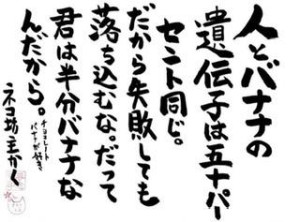 人とバナナの
遺伝子は五十パー
セント同じ。
だから失敗しても
落ち込むな。だって
君は半分バナナな
んだから。
チョコレート
バナナが好き
ネコ坊主かく